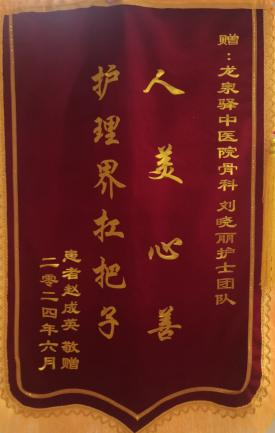 赠：龙泉驿中医院骨科 刘晓丽护士团队
人美心善
护理界扛把子
患者赵成英 敬赠
二零二四年六月